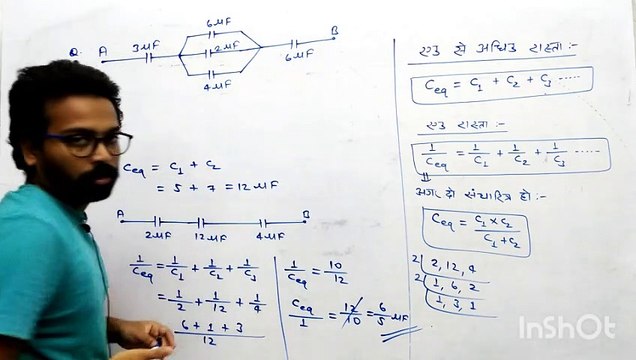 Q. A 3μF 6μF 2μF 4μF 6μF B
Ceq = C1 + C2
= 5 + 7 = 12 μF
A 2μF 12μF 4μF B
1/Ceq = 1/C1 + 1/C2 + 1/C3
= 1/2 + 1/12 + 1/4
6 + 1 + 3 / 12
1/Ceq = 10/12
Ceq/1 = 12/10 = 6/5 μF
एक से अधिक रास्ता :-
Ceq = C1 + C2 + C3 .....
एक रास्ता :-
1/Ceq = 1/C1 + 1/C2 + 1/C3 .....
अगर दो संधारित्र हो :-
Ceq = C1 × C2 / C1 + C2
2 | 2, 12, 4
2 | 1, 6, 2
1, 3, 1
InShOt